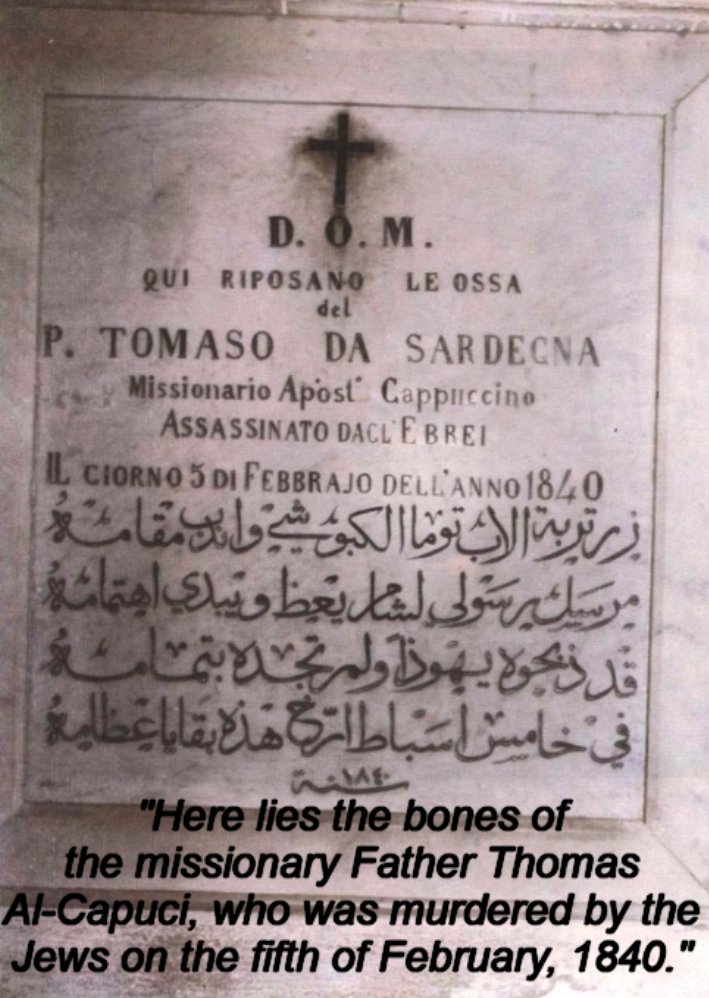 D. O. M.
QUI RIPOSANO LE OSSA
del
P. TOMASO DA SARDEGNA
Missionario Apost° Cappuccino
ASSASSINATO DAGL'EBREI
IL GIORNO 5 DI FEBBRAJO DELL'ANNO 1840
زر تربة الاب توما الكبوشي واندب مقامهُ
رسولي لشام يعظ ويبدي اهتمامهُ
قد ذبحوه يهوذا ولم تجده بتمامهُ
في خامس اسباط ارخ هذه بقايا عظامهُ
سنة ١٨٤٠
"Here lies the bones of
the missionary Father Thomas
Al-Capuci, who was murdered by the
Jews on the fifth of February, 1840."